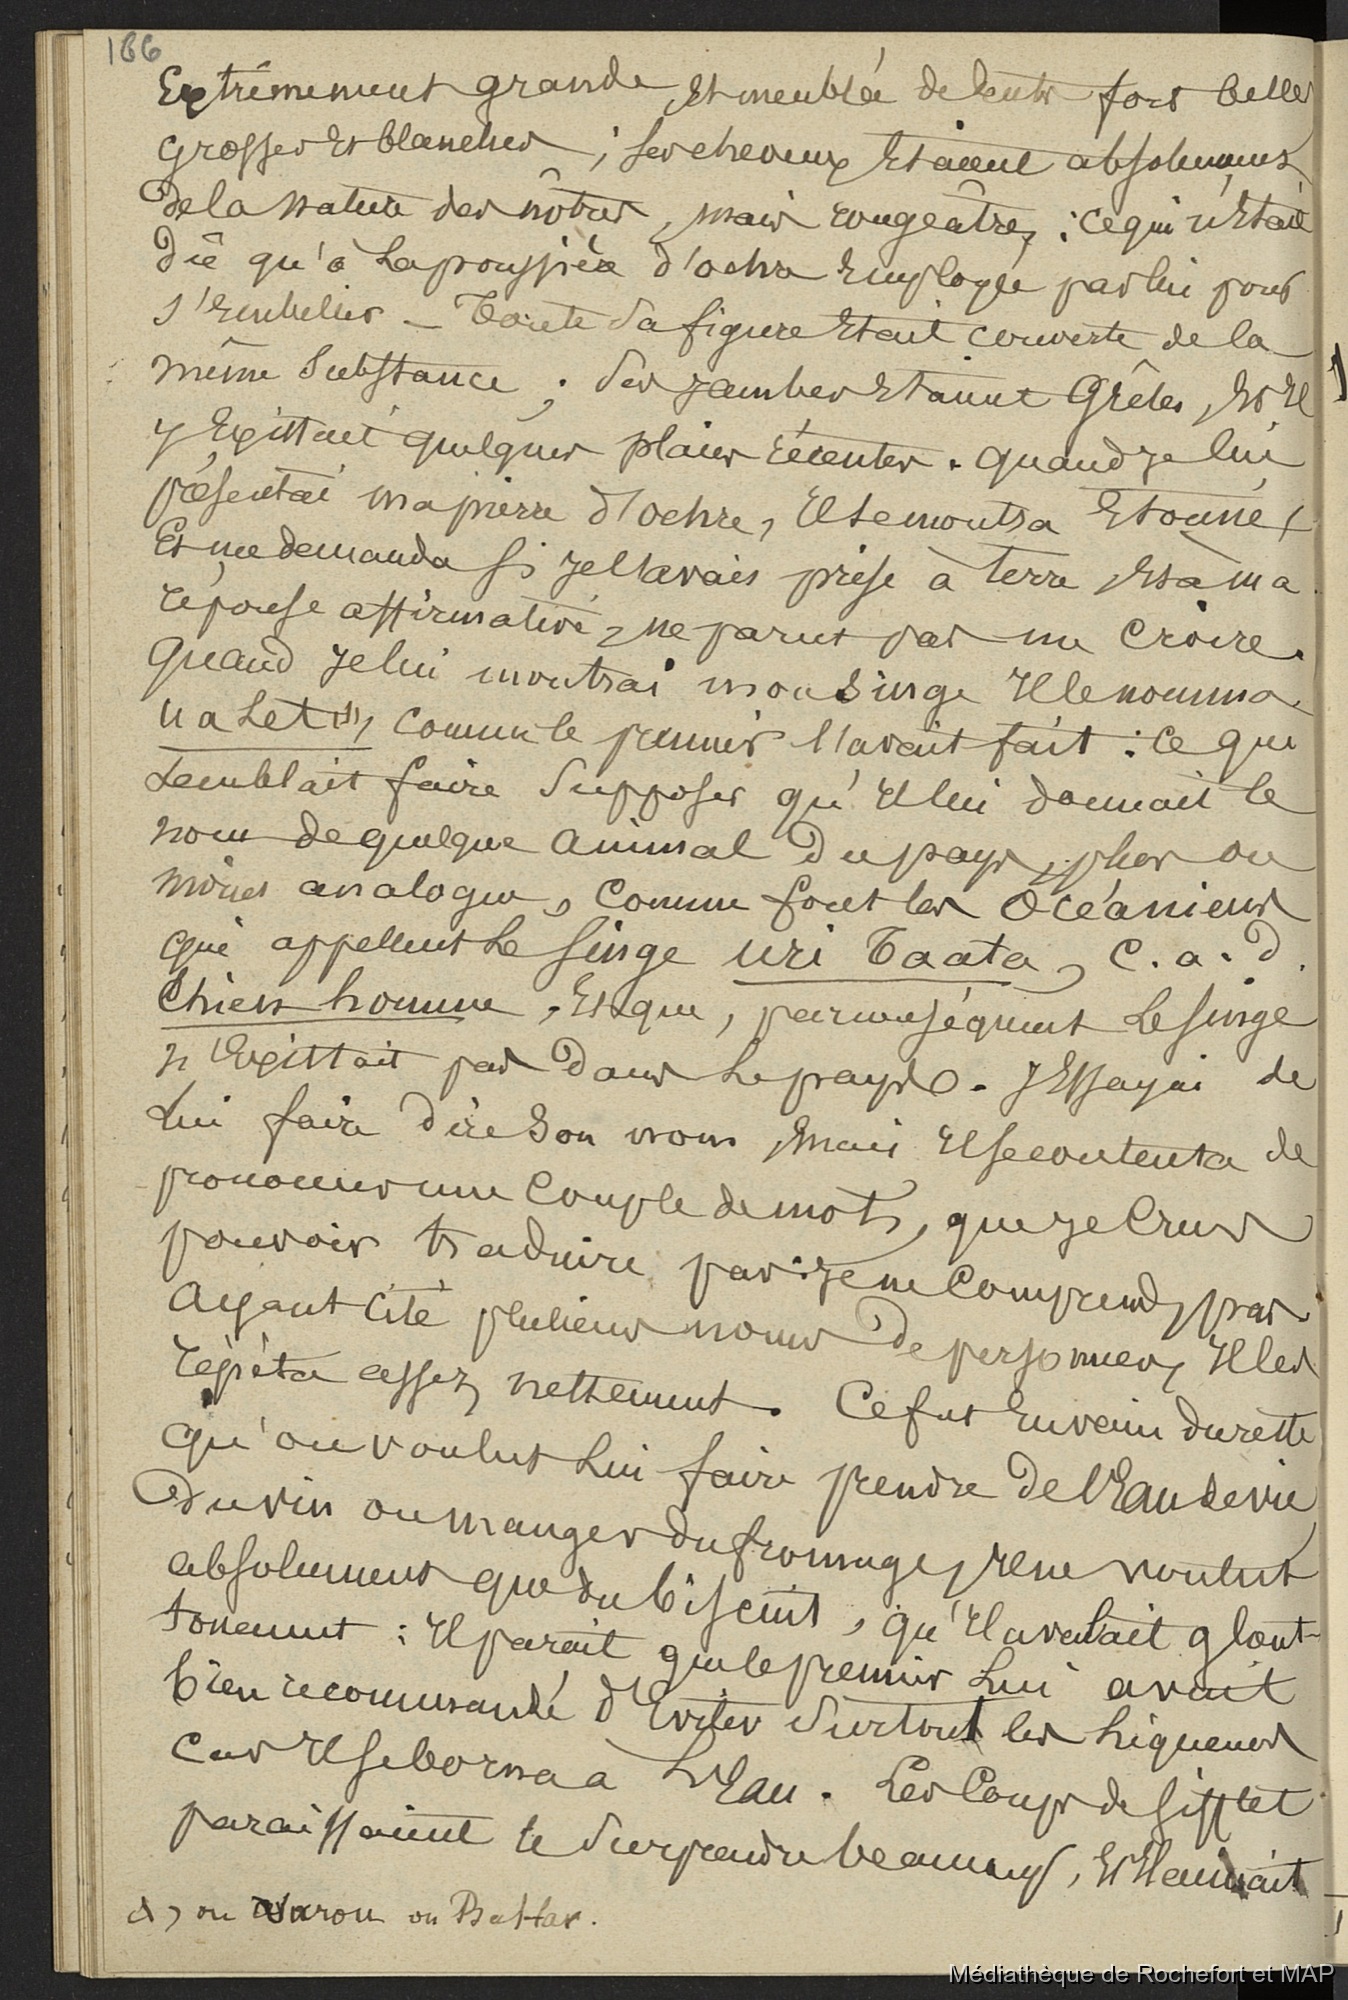 166
Extrêmement grande, et meublée de dents fort belles
grosses et blanches ; ses cheveux étaient absolument
de la nature des nôtres, mais rougeâtres, : ce qui n'était
dû qu'à la poussière d'ochre employée par lui pour
s'embellir _ Toute sa figure était couverte de la
même substance ; ses jambes étaient grêles, et il
y existait quelques plaies récentes. quand je lui
présentai ma pierre d'ochre, il se montra étonné,
Et me demanda si je l'avais prise à terre, et à ma
réponse affirmative, ne parut pas me croire.
Quand je lui montrai mon singe il le nomma
(1), comme le premier l'avait fait : ce qui
semblait faire supposer qu'il lui donnait le
nom de quelque animal du pays, plus ou
moins analogue, comme font les Océaniens
qui appellent le singe uri Taata, c. a. d.
Chien homme, et que, par conséquent le singe
n'existait pas dans le pays. J'essayai de
lui faire dire son nom, mais il se contenta de
prononcer une couple de mots, que je crus
pouvoir traduire par : je ne comprends pas.
Ayant cité plusieurs noms de personnes, il les
répéta assez nettement. Ce fut en vain du reste
qu'on voulut lui faire prendre de l'eau de vie
du vin ou manger du fromage, il ne voulut
absolument que du biscuit, qu'il avalait glout-
tonement : il paraît que le premier lui avait
bien recommandé d'éviter surtout les liqueurs
car il se borna à l'eau. Les coups de sifflet
paraissaient le surprendre beaucoup, et il aimait
(1) ou ou
Médiathèque de Rochefort et MAP